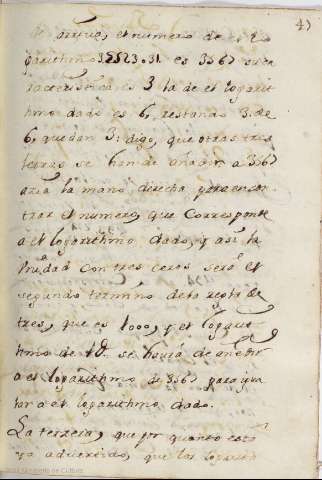 47
el numero de el lo
garithmo 35523031. es 3567 su ca
racteristica es 3 la de el logarit
thmo dado es 6, restando 3. de
6, quedan 3. digo, que otras tres
letras se han de añadir a 3567
azia la mano derecha para encon
trar el numero, que corresponde
a el logarithmo dado, y assi la
Vnidad con tres ceros será el
segundo termino de la regla de
tres, que es 1000, y el logarit
thmo de se havrá de añadir
a el logarithmo de 3567 para yqua
lar a el logarithmo dado.
La tercera, que por quanto está
ya advertido, que los logarit
Ministerio de Cultura